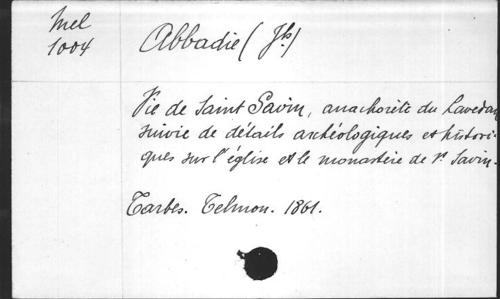 Mel
1004
Abbadie (Jh.)
Vie de Saint Savin, anachorète du Lavedan
suivie de détails archéologiques et histori-
ques sur l'église et le monastère de St Savin.
Tarbes. Telmon. 1861.